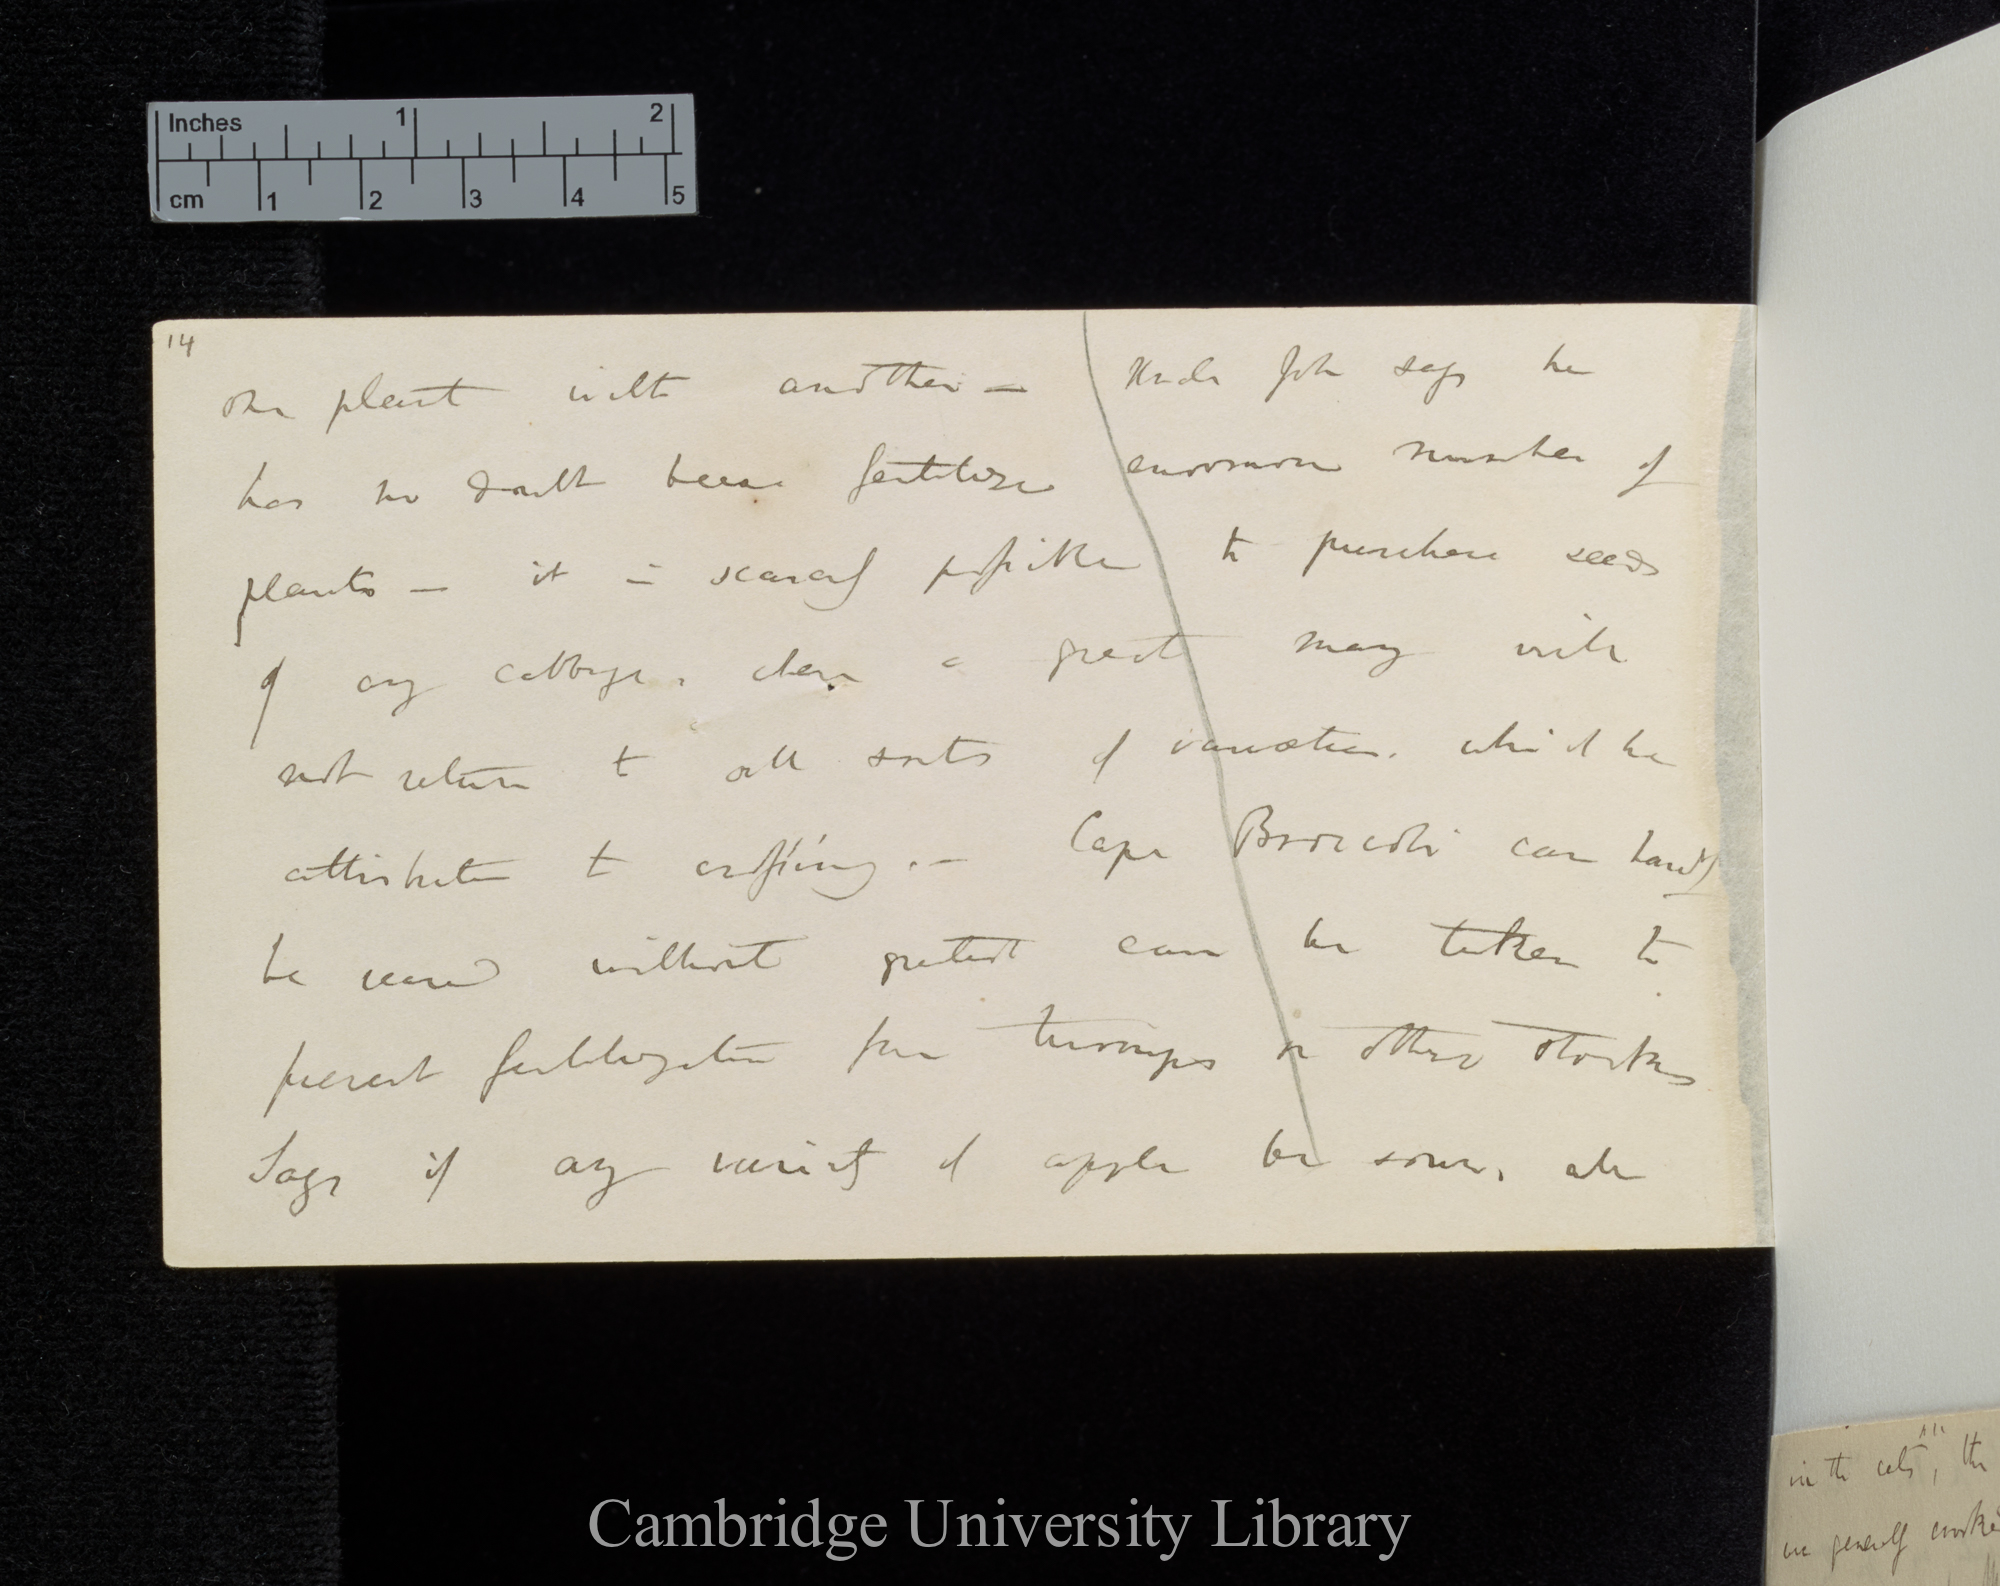 Inches 1 2
cm 1 2 3 4 5
14
one plant with another — Uncle John says he
has no doubt bees fertilize enormous number of
plants — it is scarcely possible to purchase seeds
of any cabbage, where a great many will
not return to all sorts of varieties, which he
attributes to crossing. — Cape Broccoli can hardly
be reared without greatest care be taken to
prevent fertilization from turnips or other stocks
Says if any variety of apple be sown, all
in the cats, the
are generally
Cambridge University Library